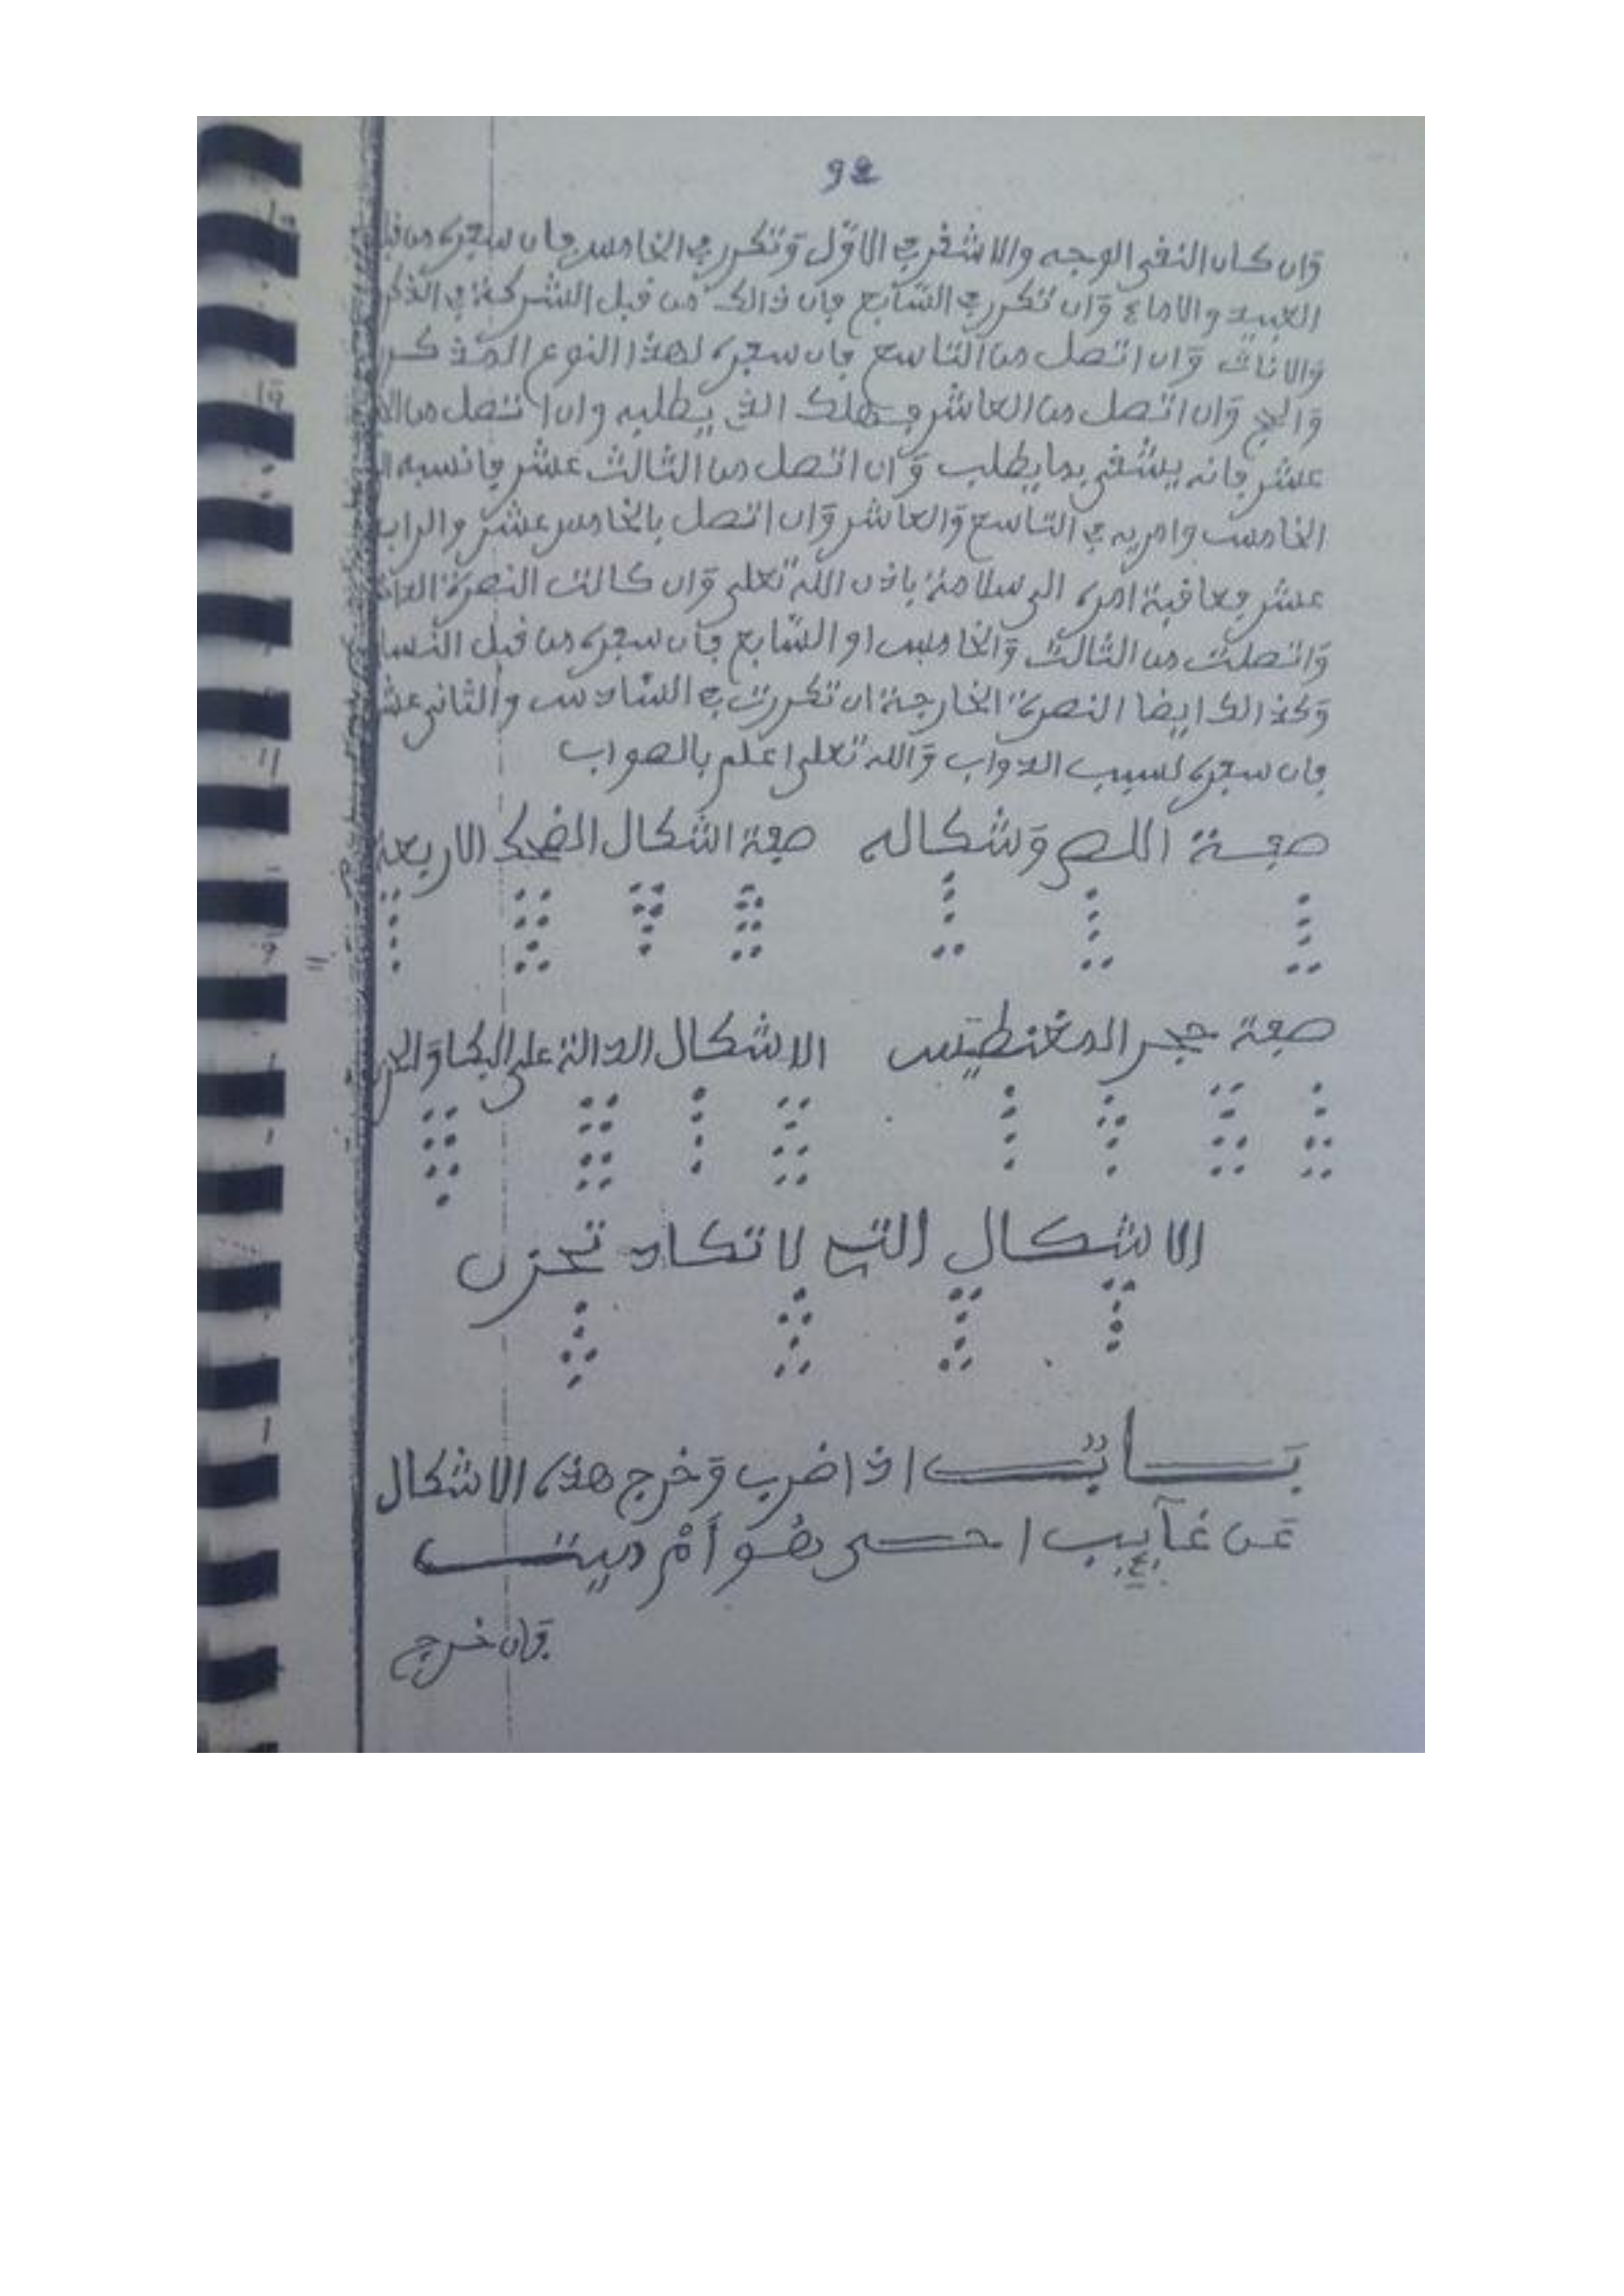 92
وان كان النقي الوجه والاشفر في الاول وتكرر في الخامس فان سفره من قبل
العبيد والاماء وان تكرر في السابع فان ذالك من قبل الشركة في الذكر
والاناث وان اتصل من التاسع فان سفره لهذا النوع المذكر
والحج وان اتصل من العاشر الذي يطلبه وان اتصل من
عشر فانه يشفى بما يطلب وان اتصل من الثالث عشر فانسبه
الخامس وامر به في التاسع والعاشر وان اتصل بالخامس عشر والراب
عشر فعاقبة امره الى سلامة باذن الله تعلى وان كانت النصرة
واتصلت من الثالث والخامس او السابع فان سفره من قبل النسا
وكذالك ايضا النصرة الخارجة ان تكررت في السادس والثاني عشر
فان سفره لسبب الدواب والله تعلى اعلم بالصواب
صفة اللص وشكاله صفة اشكال الضحك الاربعة
صفة حجر المغنطيس الاشكال الدالة على البكا والحز
الاشكال التي لا تكاد تحزن
باب اذا ضرب وخرج هذه الاشكال
عن غايب احي هو أم ميت
فان خرج